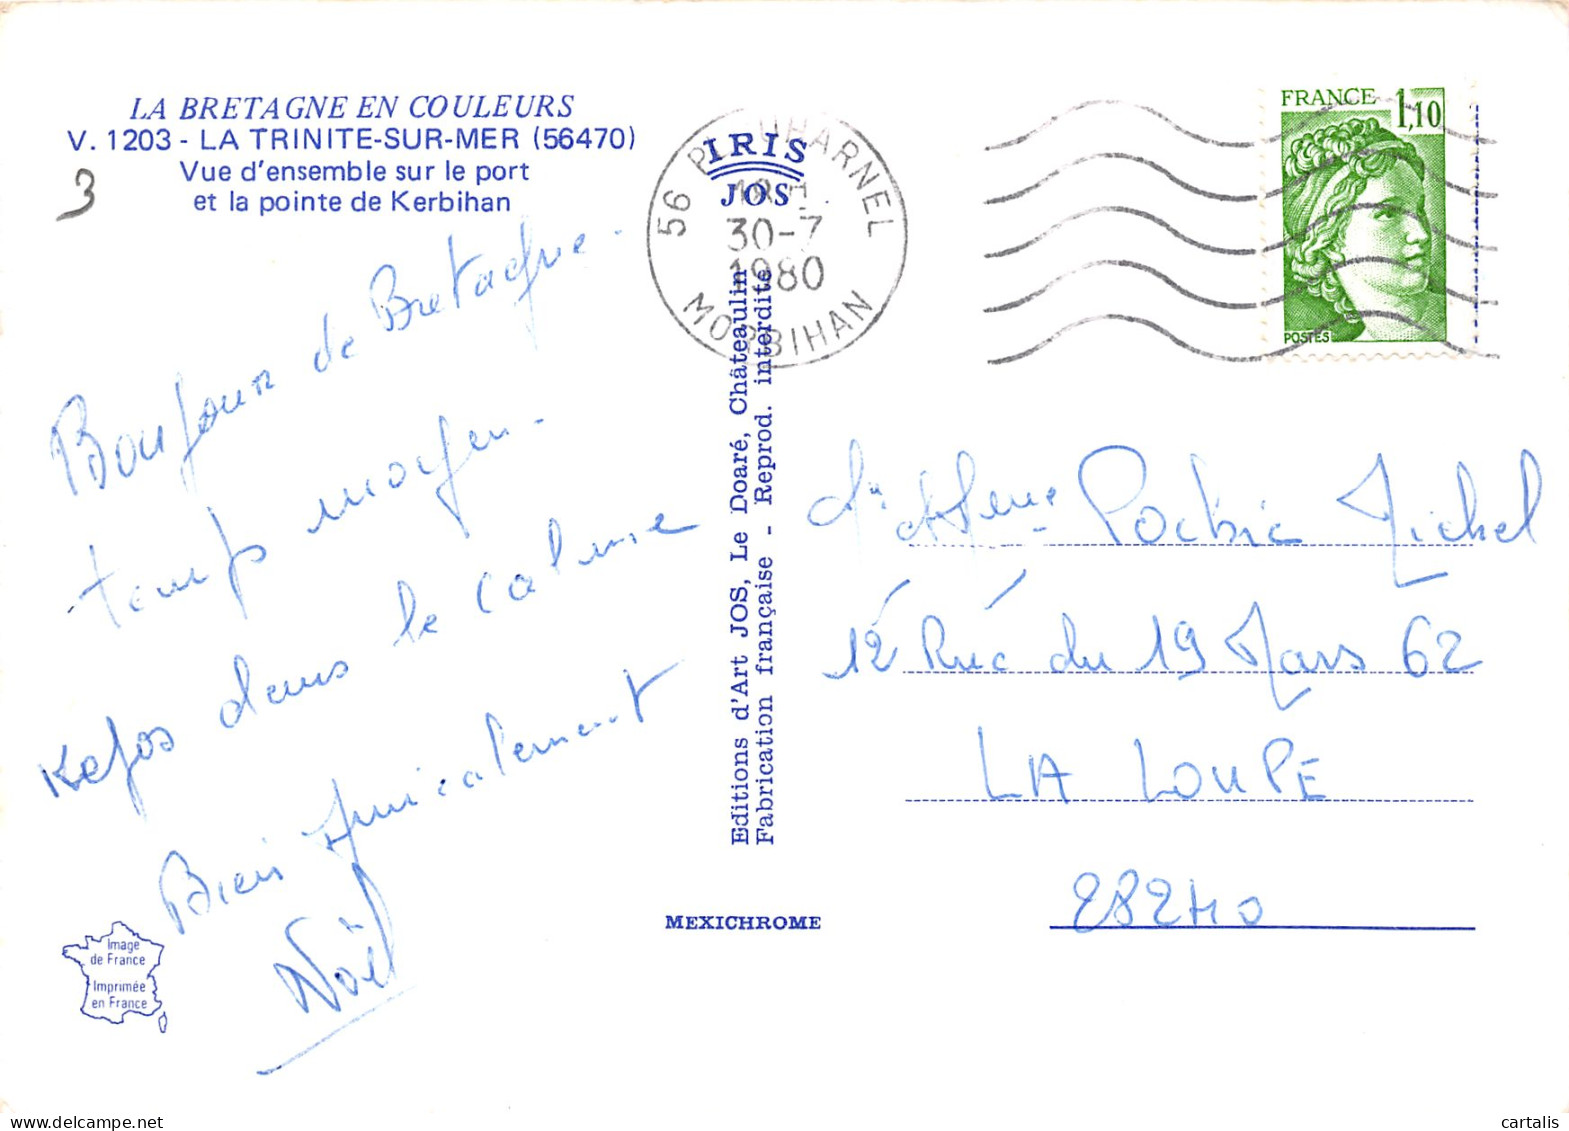 LA BRETAGNE EN COULEURS
V. 1203 - LA TRINITE-SUR-MER (56470)
Vue d'ensemble sur le port
et la pointe de Kerbihan
3
Bonjour de Bretagne.
temps moyen.
Repos dans le calme
Bien Amicalement
Noël
Image
de France
Imprimée
en France
IRIS
JOS
56 PLOUHARNEL
30-7
1980
MORBIHAN
Editions d'Art JOS, Le Doaré, Châteaulin
Fabrication française - Reprod. interdite
MEXICHROME
FRANCE 1,10
POSTES
Michel
12 Rue du 19 Mars 62
LA LOUPE
28240
cartalis